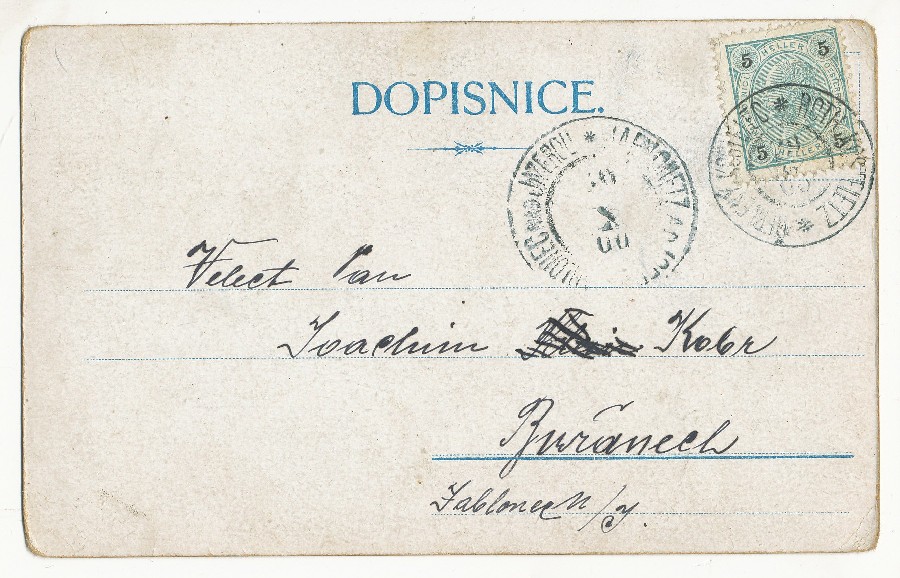 DOPISNICE.
5 HELLER 5
5 HELLER 5
Velect Pan
Joachim Kobr
Buřanech
Jablonec N/J.